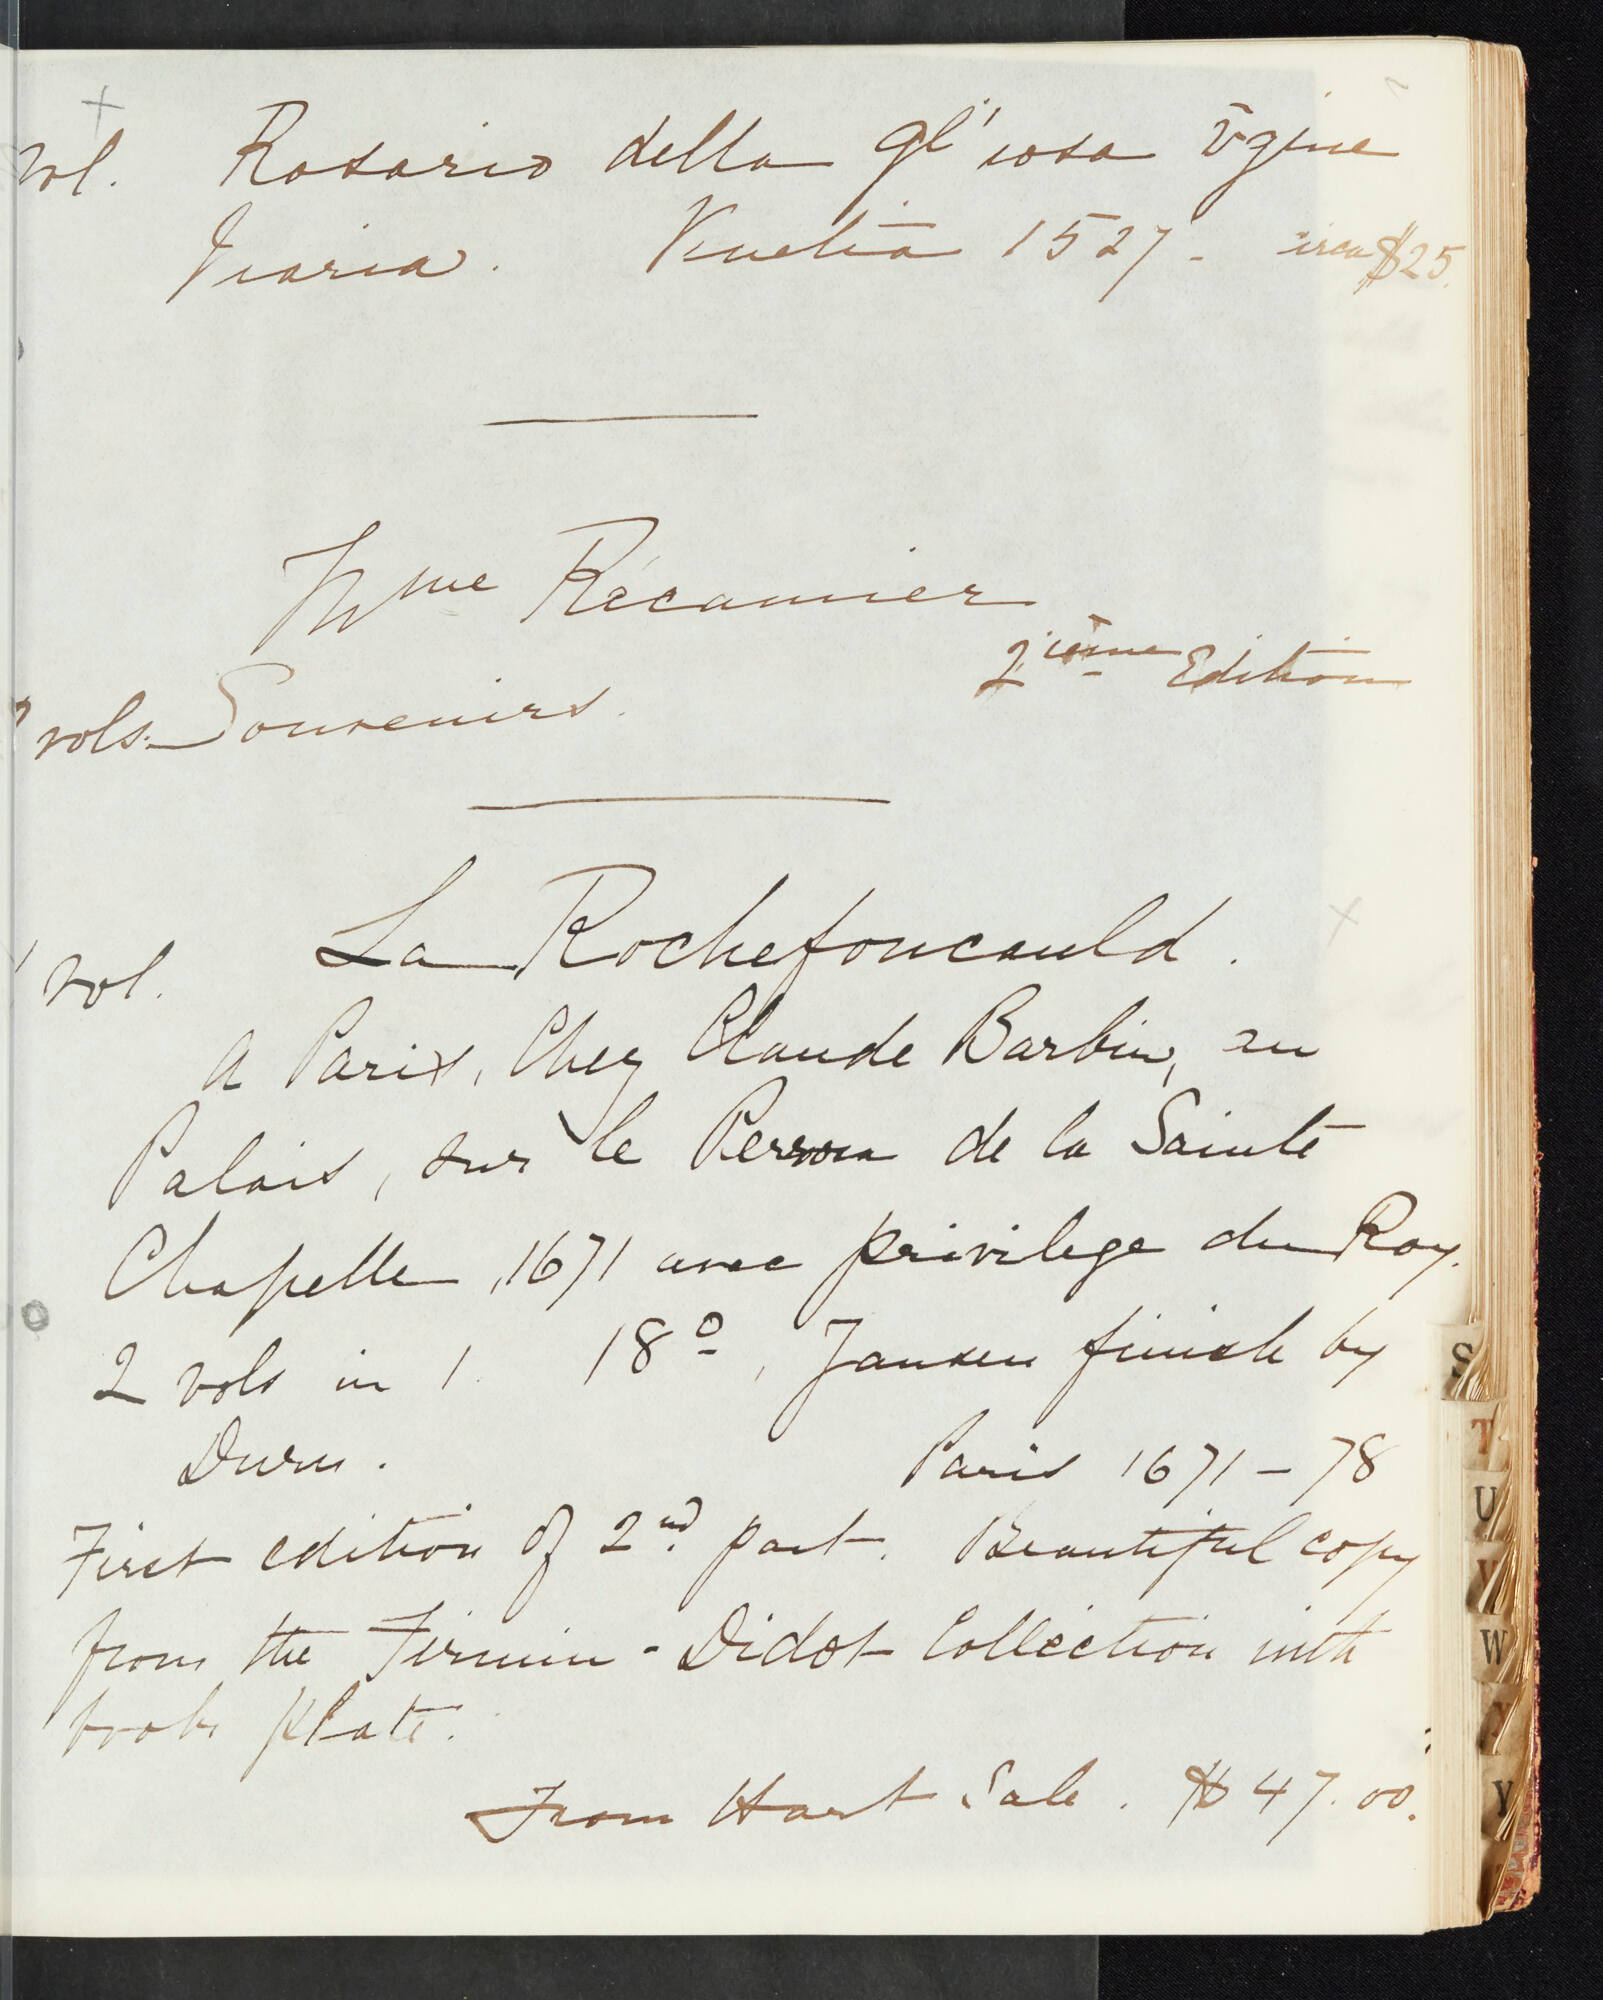 vol. Rosario della gl'iosa v̄gine
Maria. Venetia 1527 - circa $25.
Mme Récamier
2ième Edition
vols. Souvenirs.
1 vol. La Rochefoucauld.
A Paris, Chez Claude Barbin, au
Palais, sur le Perron de la Sainte
Chapelle, 1671 avec privilege du Roy.
2 vols in 1. 18º, Jansen finish by
Duru. Paris 1671-78
First edition of 2nd part. Beautiful copy
from the Firmin-Didot Collection with
book plate.
From Hart Sale. $47.00.
S
T
U
V
W
X
Y